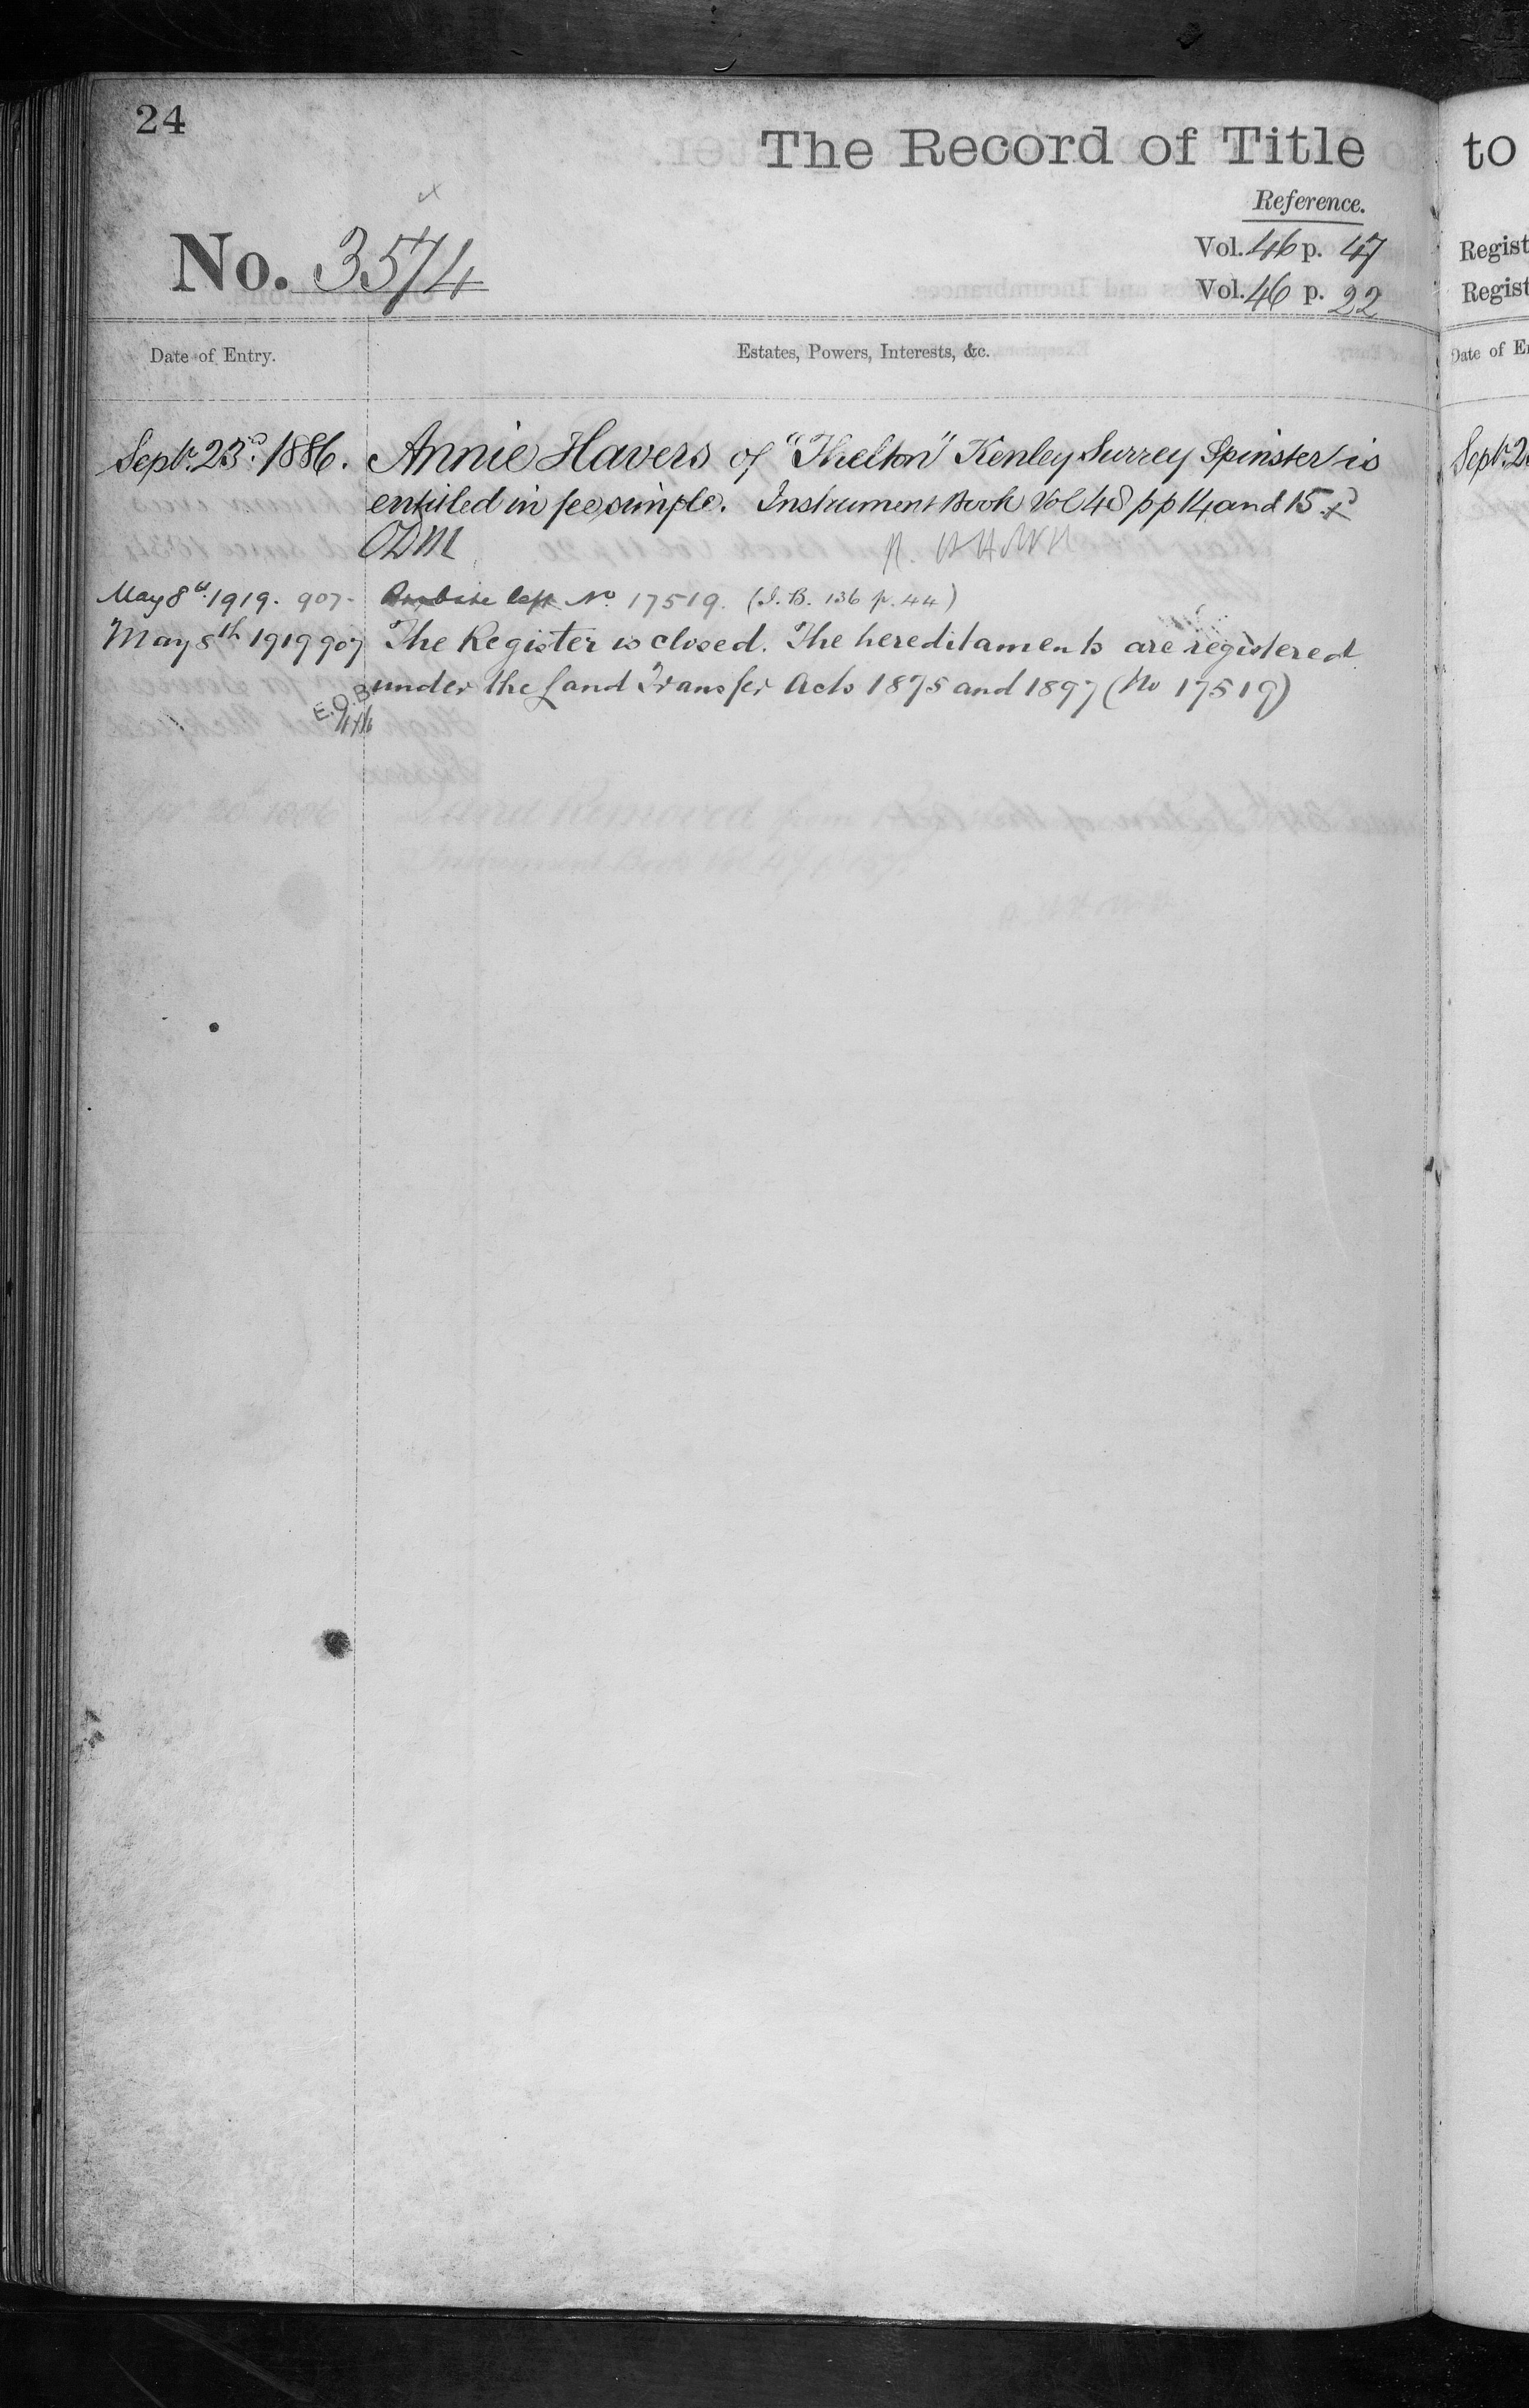 24
The Record of Title
to
Reference.
No. 3574
Vol. 46 p. 47
Vol. 46 p. 22
Regist
Regist
Date of Entry.
Estates, Powers, Interests, &c.
Date of E
Septr. 23d. 1886. Annie Havers of "Thelton" Kenley Surrey Spinster is
entitled in fee simple. Instrument Book Vol 48 pp 14 and 15
ODM
May 8th 1919. 907. left No 17519. (I.B. 136 p. 44)
May 8th 1919 907 The Register is closed. The hereditaments are registered
under the Land Transfer Acts 1875 and 1897 (No 17519)
E.O.B
Septr. 2